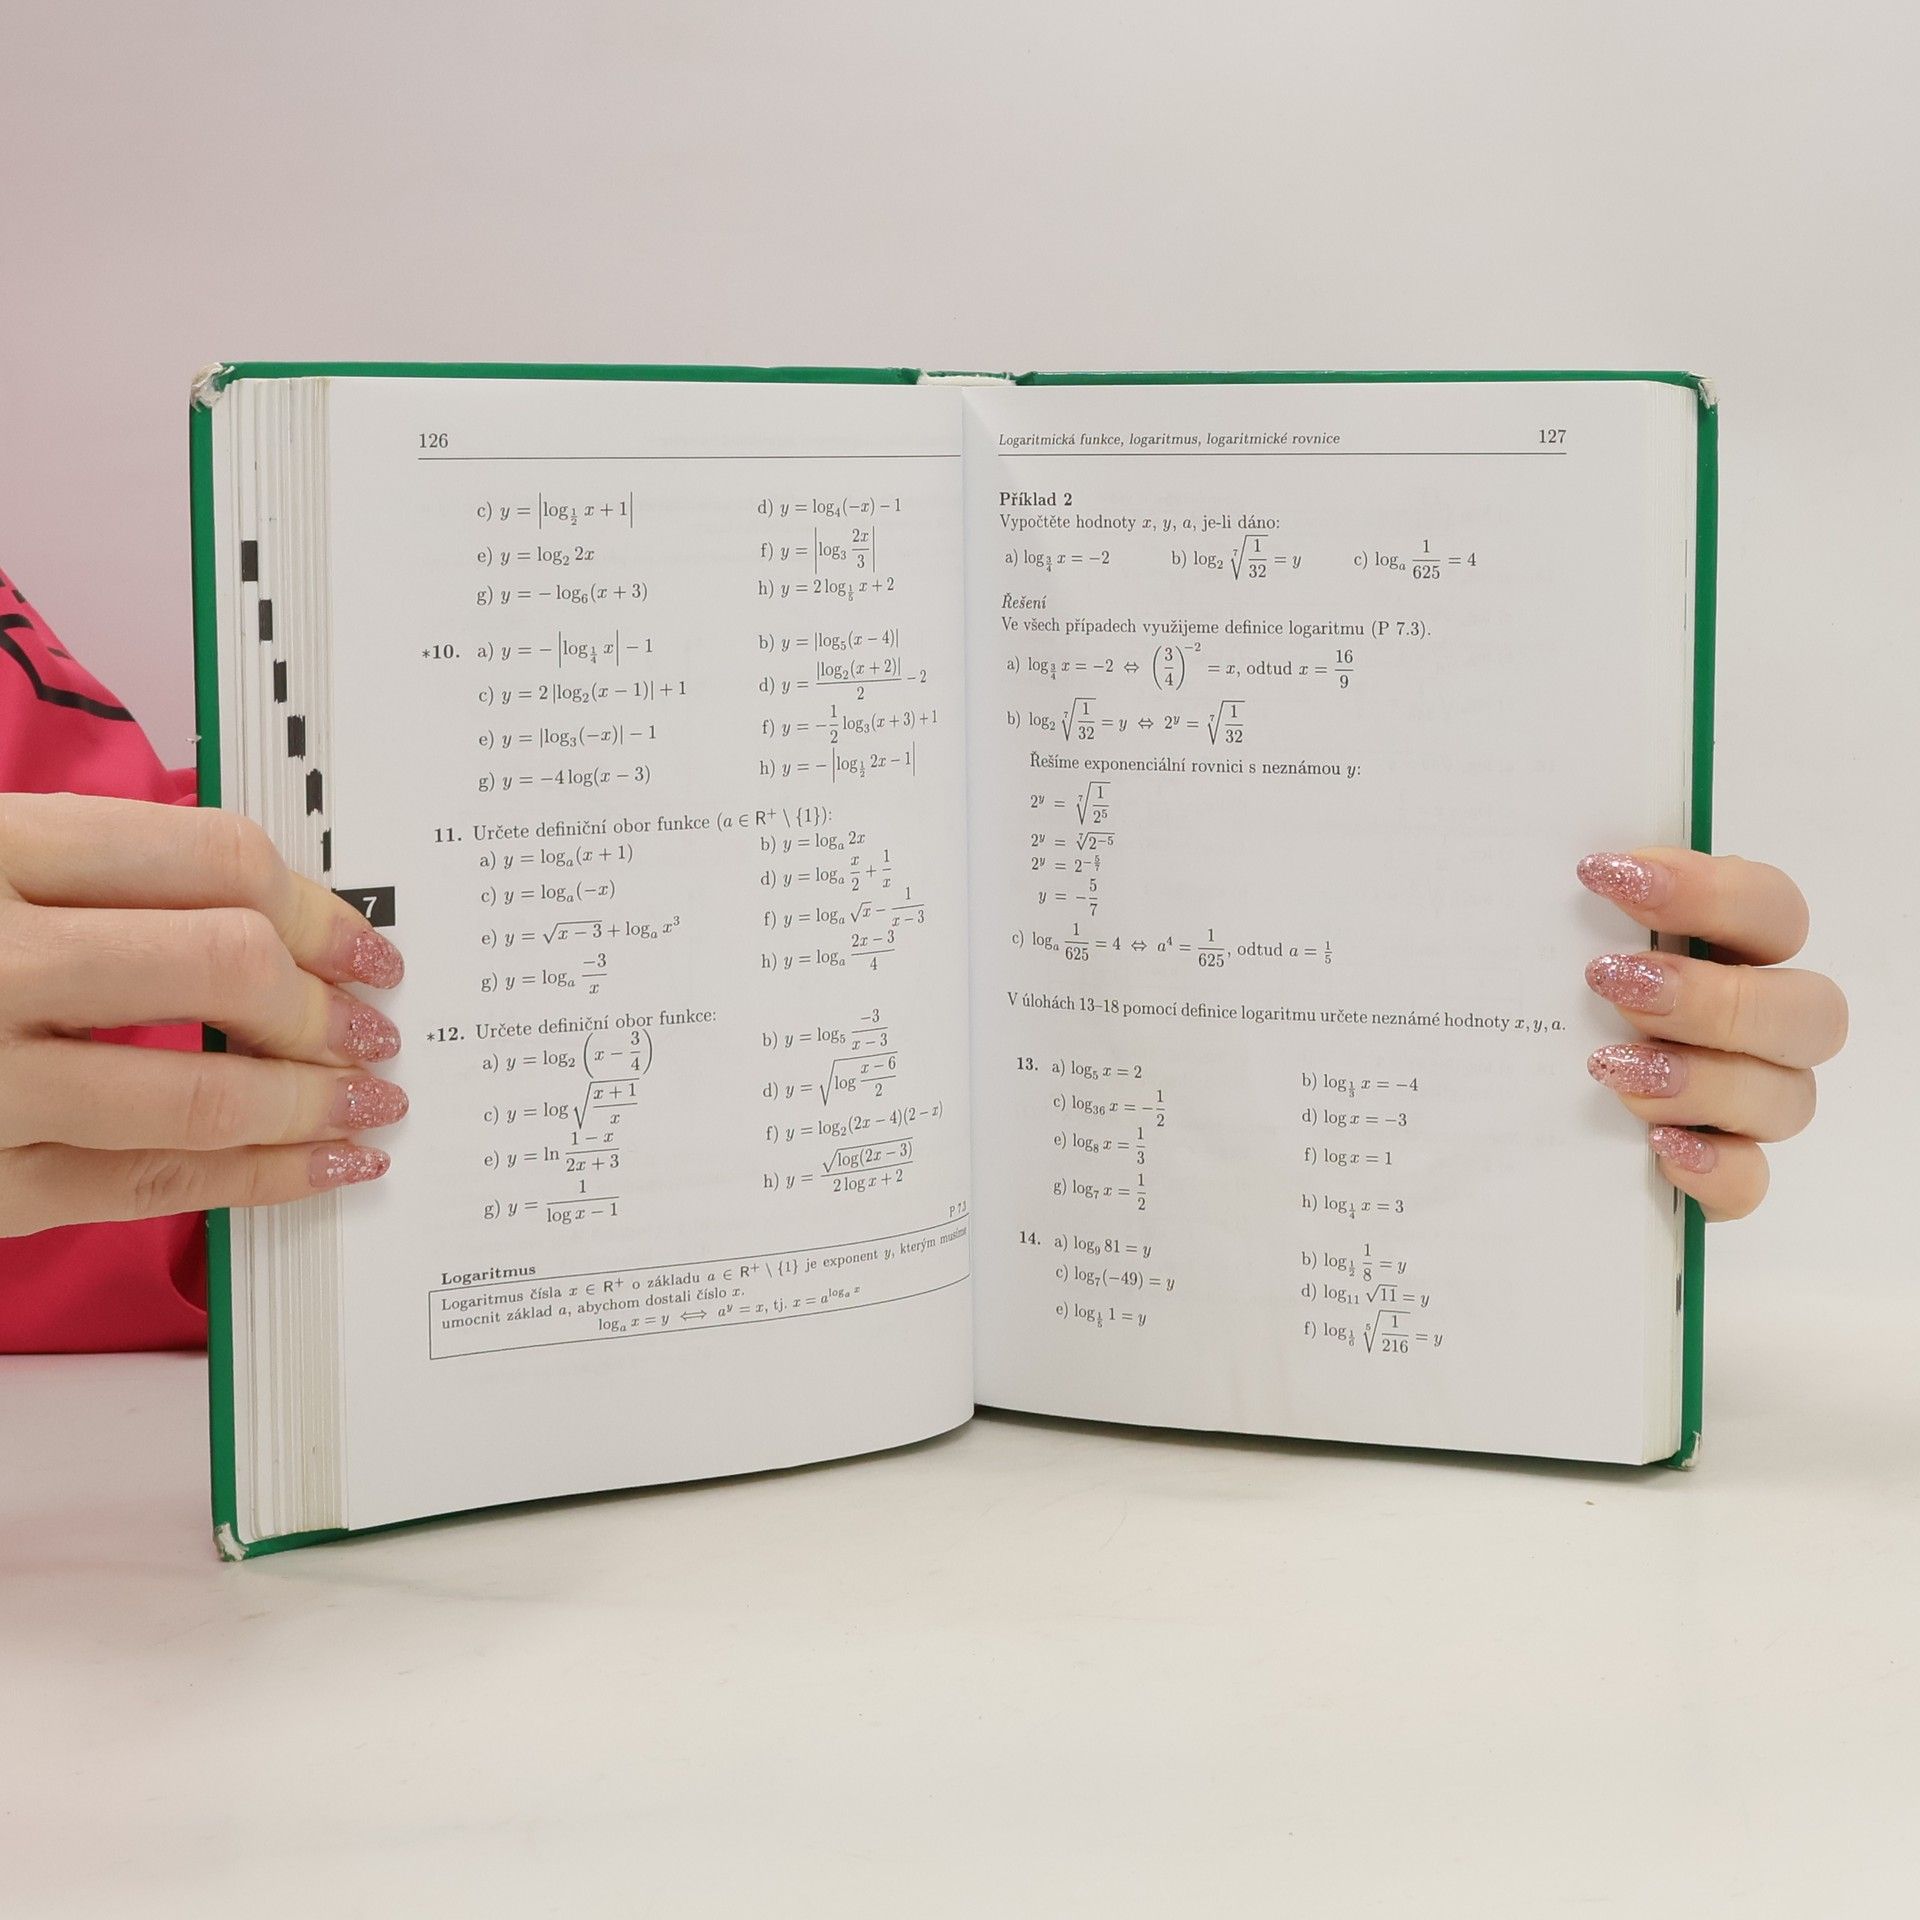 126
c) y = |log_{1/2} x + 1| d) y = log₄(−x) − 1
e) y = log₂ 2x f) y = |log₃ 2x/3|
g) y = − log₆(x + 3) h) y = 2 log_{1/5} x + 2
*10. a) y = − |log_{1/4} x| − 1 b) y = |log₅(x − 4)|
c) y = 2 |log₂(x − 1)| + 1 d) y = |log₂(x + 2)|/2 − 2
e) y = |log₃(−x)| − 1 f) y = −1/2 log₃(x + 3) + 1
g) y = −4 log(x − 3) h) y = − |log_{1/2} 2x − 1|
11. Určete definiční obor funkce (a ∈ R⁺ \ {1}):
a) y = logₐ(x + 1) b) y = logₐ 2x
c) y = logₐ(−x) d) y = logₐ x/2 + 1/x
e) y = √(x − 3) + logₐ x³ f) y = logₐ √x − 1/(x − 3)
g) y = logₐ −3/x h) y = logₐ (2x − 3)/4
*12. Určete definiční obor funkce:
a) y = log₂ (x − 3/4) b) y = log₅ −3/(x − 3)
c) y = log √((x + 1)/x) d) y = √(log (x − 6)/2)
e) y = ln (1 − x)/(2x + 3) f) y = log₂(2x − 4)(2 − x)
g) y = 1/(log x − 1) h) y = √(log(2x − 3))/(2 log x + 2)
P 7.3
Logaritmus
Logaritmus čísla x ∈ R⁺ o základu a ∈ R⁺ \ {1} je exponent y, kterým musíme
umocnit základ a, abychom dostali číslo x.
logₐ x = y ⟺ a^y = x, tj. x = a^{logₐ x}
7
Logaritmická funkce, logaritmus, logaritmické rovnice 127
Příklad 2
Vypočtěte hodnoty x, y, a, je-li dáno:
a) log_{3/4} x = −2 b) log₂ ⁷√(1/32) = y c) logₐ 1/625 = 4
Řešení
Ve všech případech využijeme definice logaritmu (P 7.3).
a) log_{3/4} x = −2 ⇔ (3/4)^{−2} = x, odtud x = 16/9
b) log₂ ⁷√(1/32) = y ⇔ 2^y = ⁷√(1/32)
Řešíme exponenciální rovnici s neznámou y:
2^y = ⁷√(1/2⁵)
2^y = ⁷√(2^{−5})
2^y = 2^{−5/7}
y = −5/7
c) logₐ 1/625 = 4 ⇔ a⁴ = 1/625, odtud a = 1/5
V úlohách 13–18 pomocí definice logaritmu určete neznámé hodnoty x, y, a.
13. a) log₅ x = 2 b) log_{1/3} x = −4
c) log₃₆ x = −1/2 d) log x = −3
e) log₈ x = 1/3 f) log x = 1
g) log₇ x = 1/2 h) log_{1/4} x = 3
14. a) log₉ 81 = y b) log_{1/2} 1/8 = y
c) log₇(−49) = y d) log₁₁ √11 = y
e) log_{1/5} 1 = y f) log_{1/6} ⁵√(1/216) = y